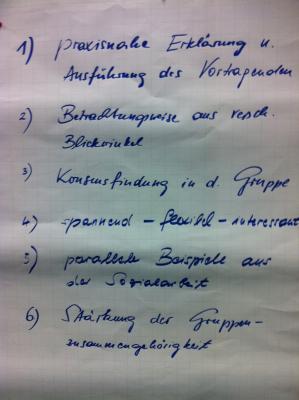 1) praxisnahe Erklärung u.
Ausführung des Vortragenden
2) Betrachtungsweise aus versch.
Blickwinkel
3) Konsensfindung in d. Gruppe
4) spannend – flexibel – interessant
5) parallele Beispiele aus
der Sozialarbeit
6) Stärkung der Gruppen-
zusammengehörigkeit